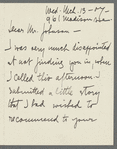 Wed. Mch. 13 - 07 -
961 Madison Ave
Dear Mr. Johnson -
I was very much disappointed
at not finding you in when
I called this afternoon - I
submitted a little story
that I had wished to
recommend to your